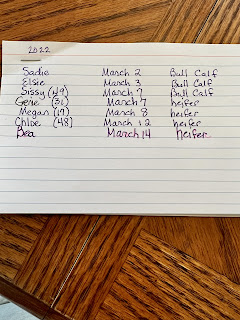 2022
Sadie March 2 Bull Calf
Elsie March 3 Bull Calf
Sissy (49) March 7 Bull Calf
Gene (31) March 7 heifer
Megan (19) March 8 heifer
Chloe (48) March 12 heifer
Bea March 14 heifer